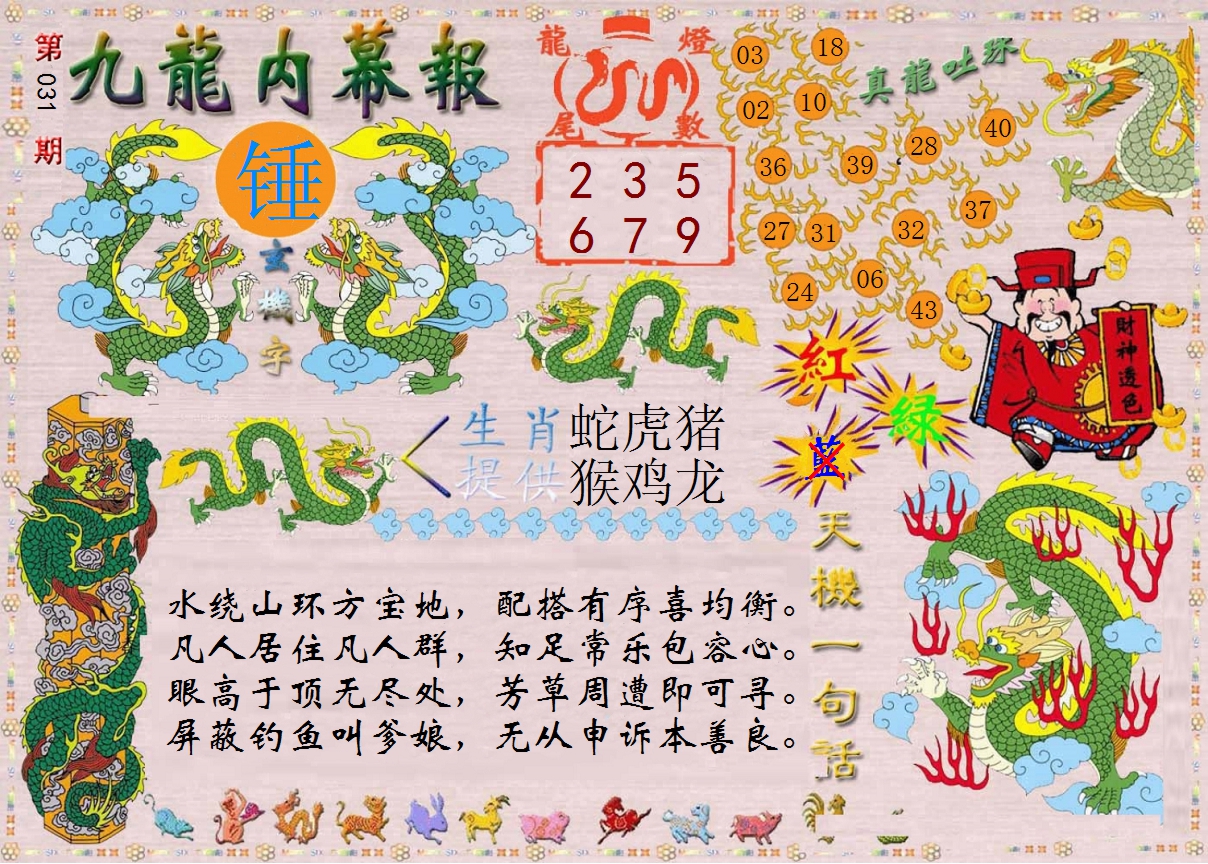 第031期
九龍内幕報
锤
玄機字
龍燈尾數
2 3 5
6 7 9
真龍吐珠
03 18
02 10
36 39 28 40
27 31 32 37
24 06 43
紅
綠
藍
財神透色
生肖 蛇虎猪
提供 猴鸡龙
天機一句話
水绕山环方宝地，配搭有序喜均衡。
凡人居住凡人群，知足常乐包容心。
眼高于顶无尽处，芳草周遭即可寻。
屏蔽钓鱼叫爹娘，无从申诉本善良。